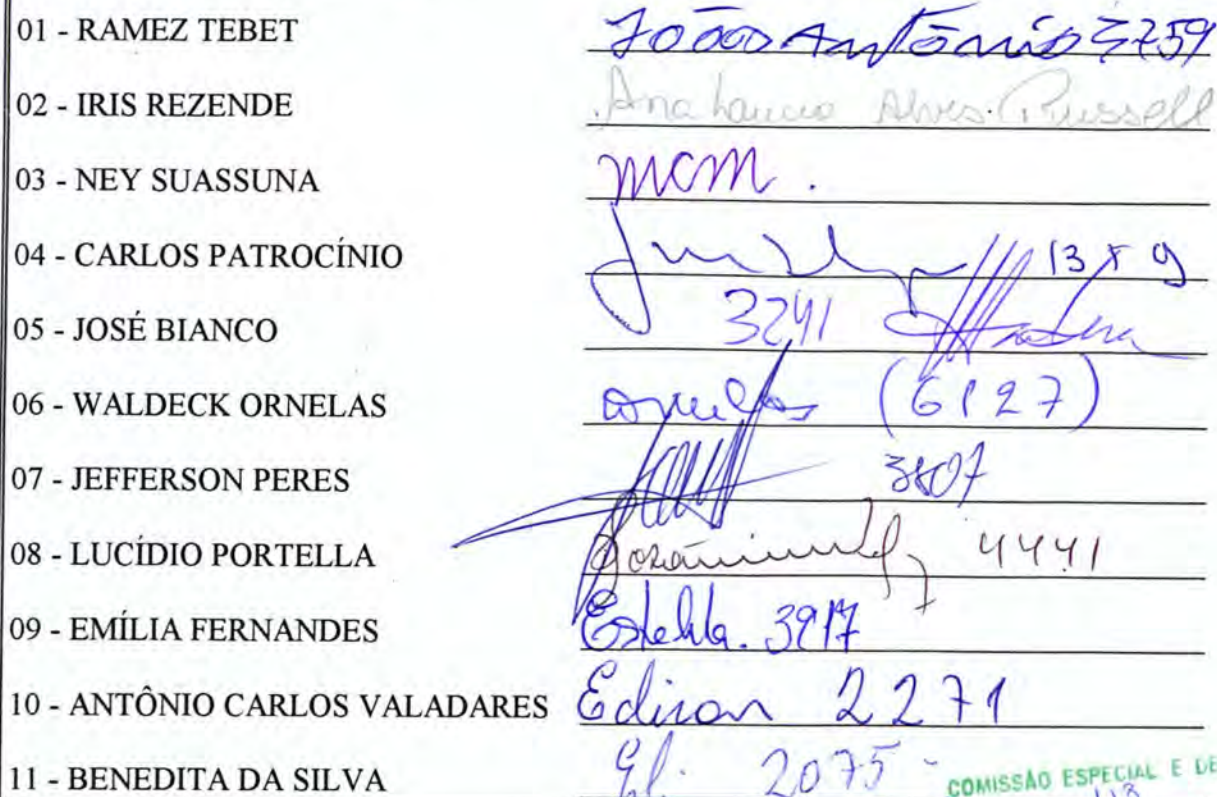 01 - RAMEZ TEBET João Antônio 3759
02 - IRIS REZENDE Ana Lucia Alves Russell
03 - NEY SUASSUNA MCM.
04 - CARLOS PATROCÍNIO
05 - JOSÉ BIANCO 3241
06 - WALDECK ORNELAS ornelas (6127)
07 - JEFFERSON PERES
08 - LUCÍDIO PORTELLA 4441
09 - EMÍLIA FERNANDES
10 - ANTÔNIO CARLOS VALADARES Edison 2271
11 - BENEDITA DA SILVA 2075
COMISSÃO ESPECIAL E DE